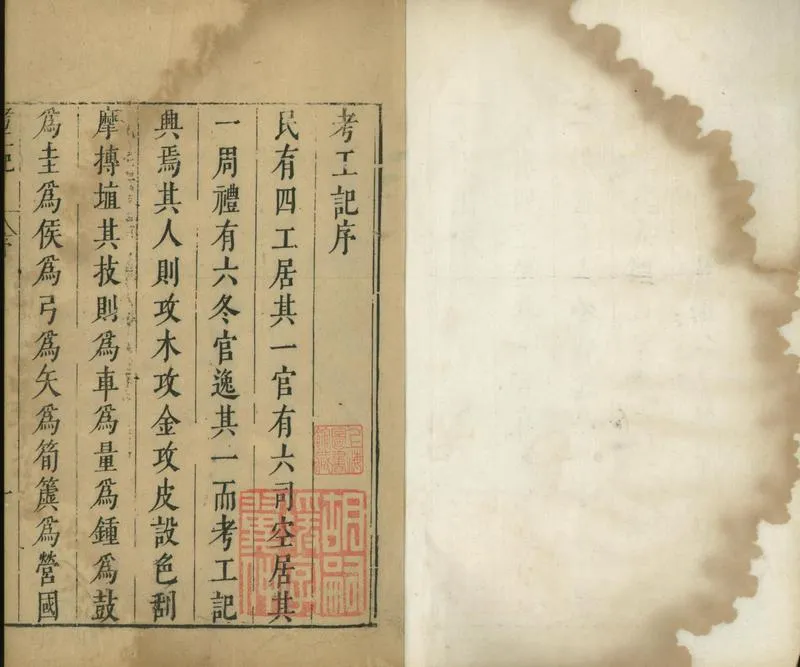 考工記序
民有四工居其一官有六司空居其
一周禮有六冬官逸其一而考工記
興焉其人則攻木攻金攻皮設色刮
摩摶埴其技則為車為量為鍾為鼓
為圭為侯為弓為矢為筍簴為營國